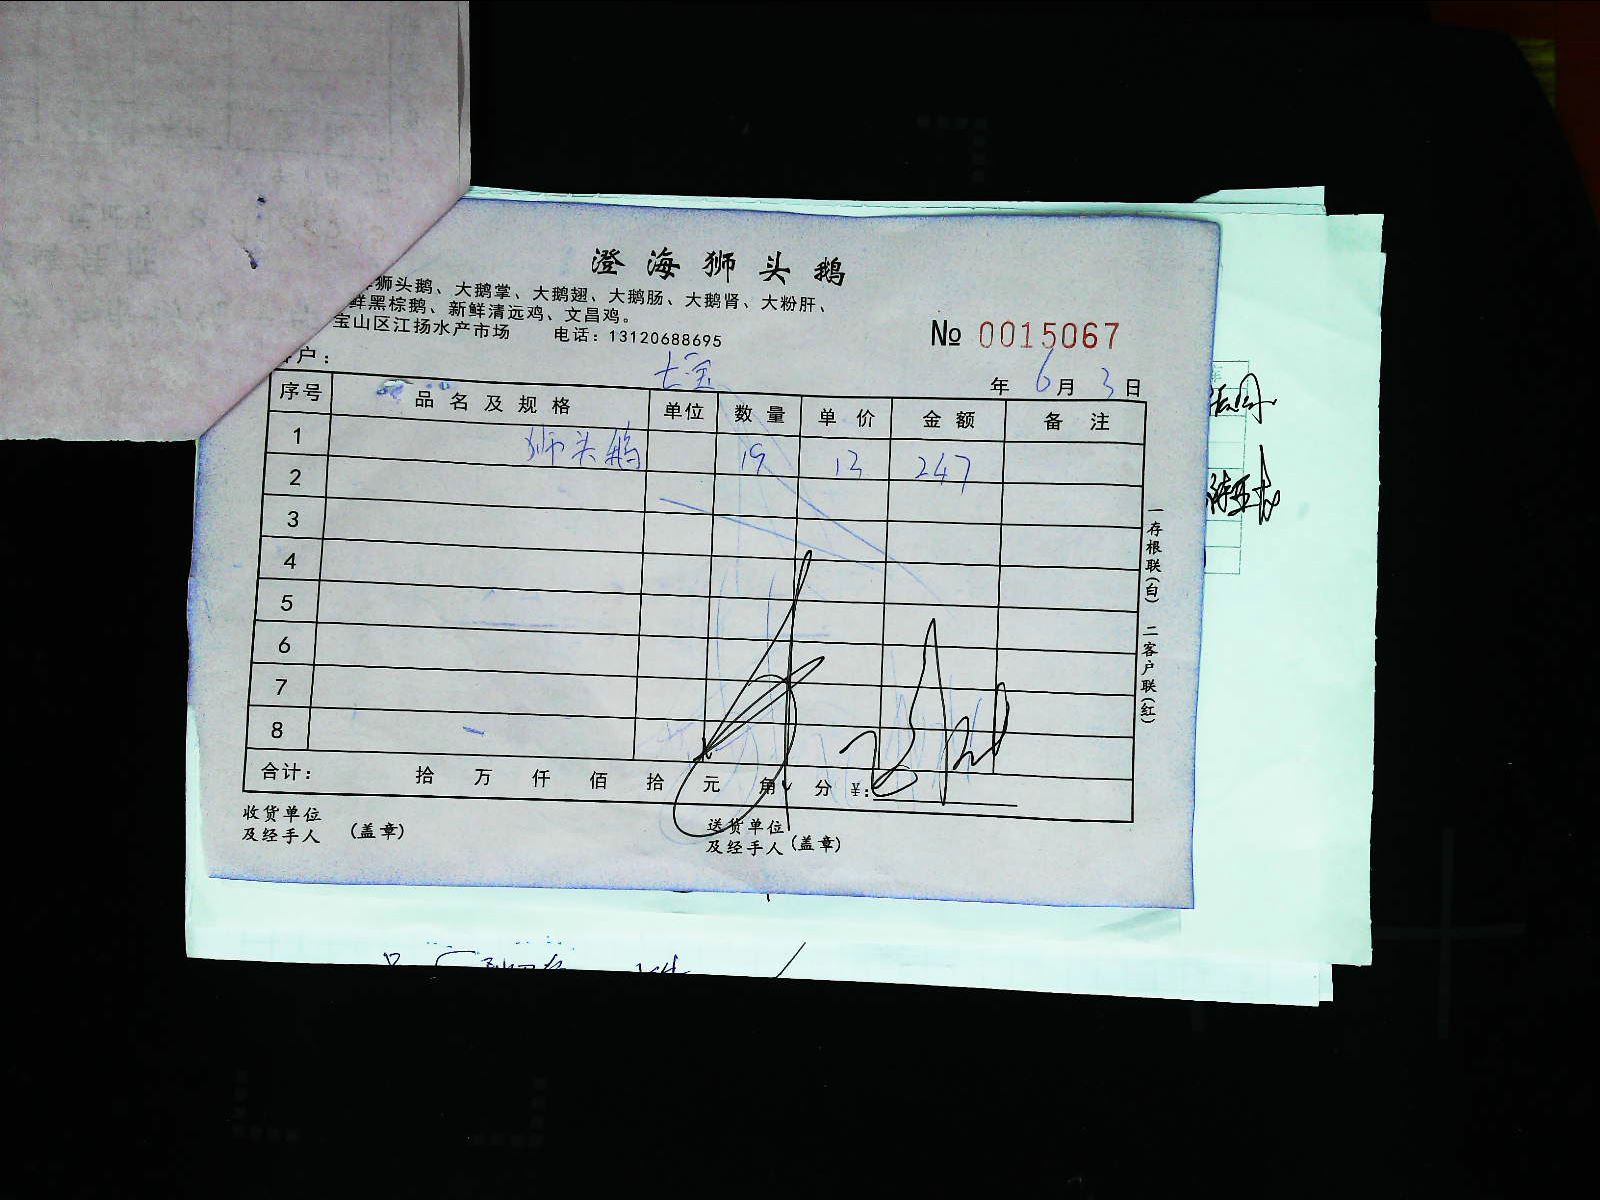 澄海狮头鹅
狮头鹅、大鹅掌、大鹅翅、大鹅肠、大鹅肾、大粉肝、
鲜黑棕鹅、新鲜清远鸡、文昌鸡。
宝山区江扬水产市场 电话：13120688695
№ 0015067
户： 七宝 年 6月 3日
序号 品名及规格 单位 数量 单价 金额 备注
1 狮头鹅 19 13 247
2
3
4
5
6
7
8
合计： 拾 万 仟 佰 拾 元 角 分 ¥:
收货单位 送货单位
及经手人 (盖章) 及经手人 (盖章)
一存根联(白) 二客户联(红)